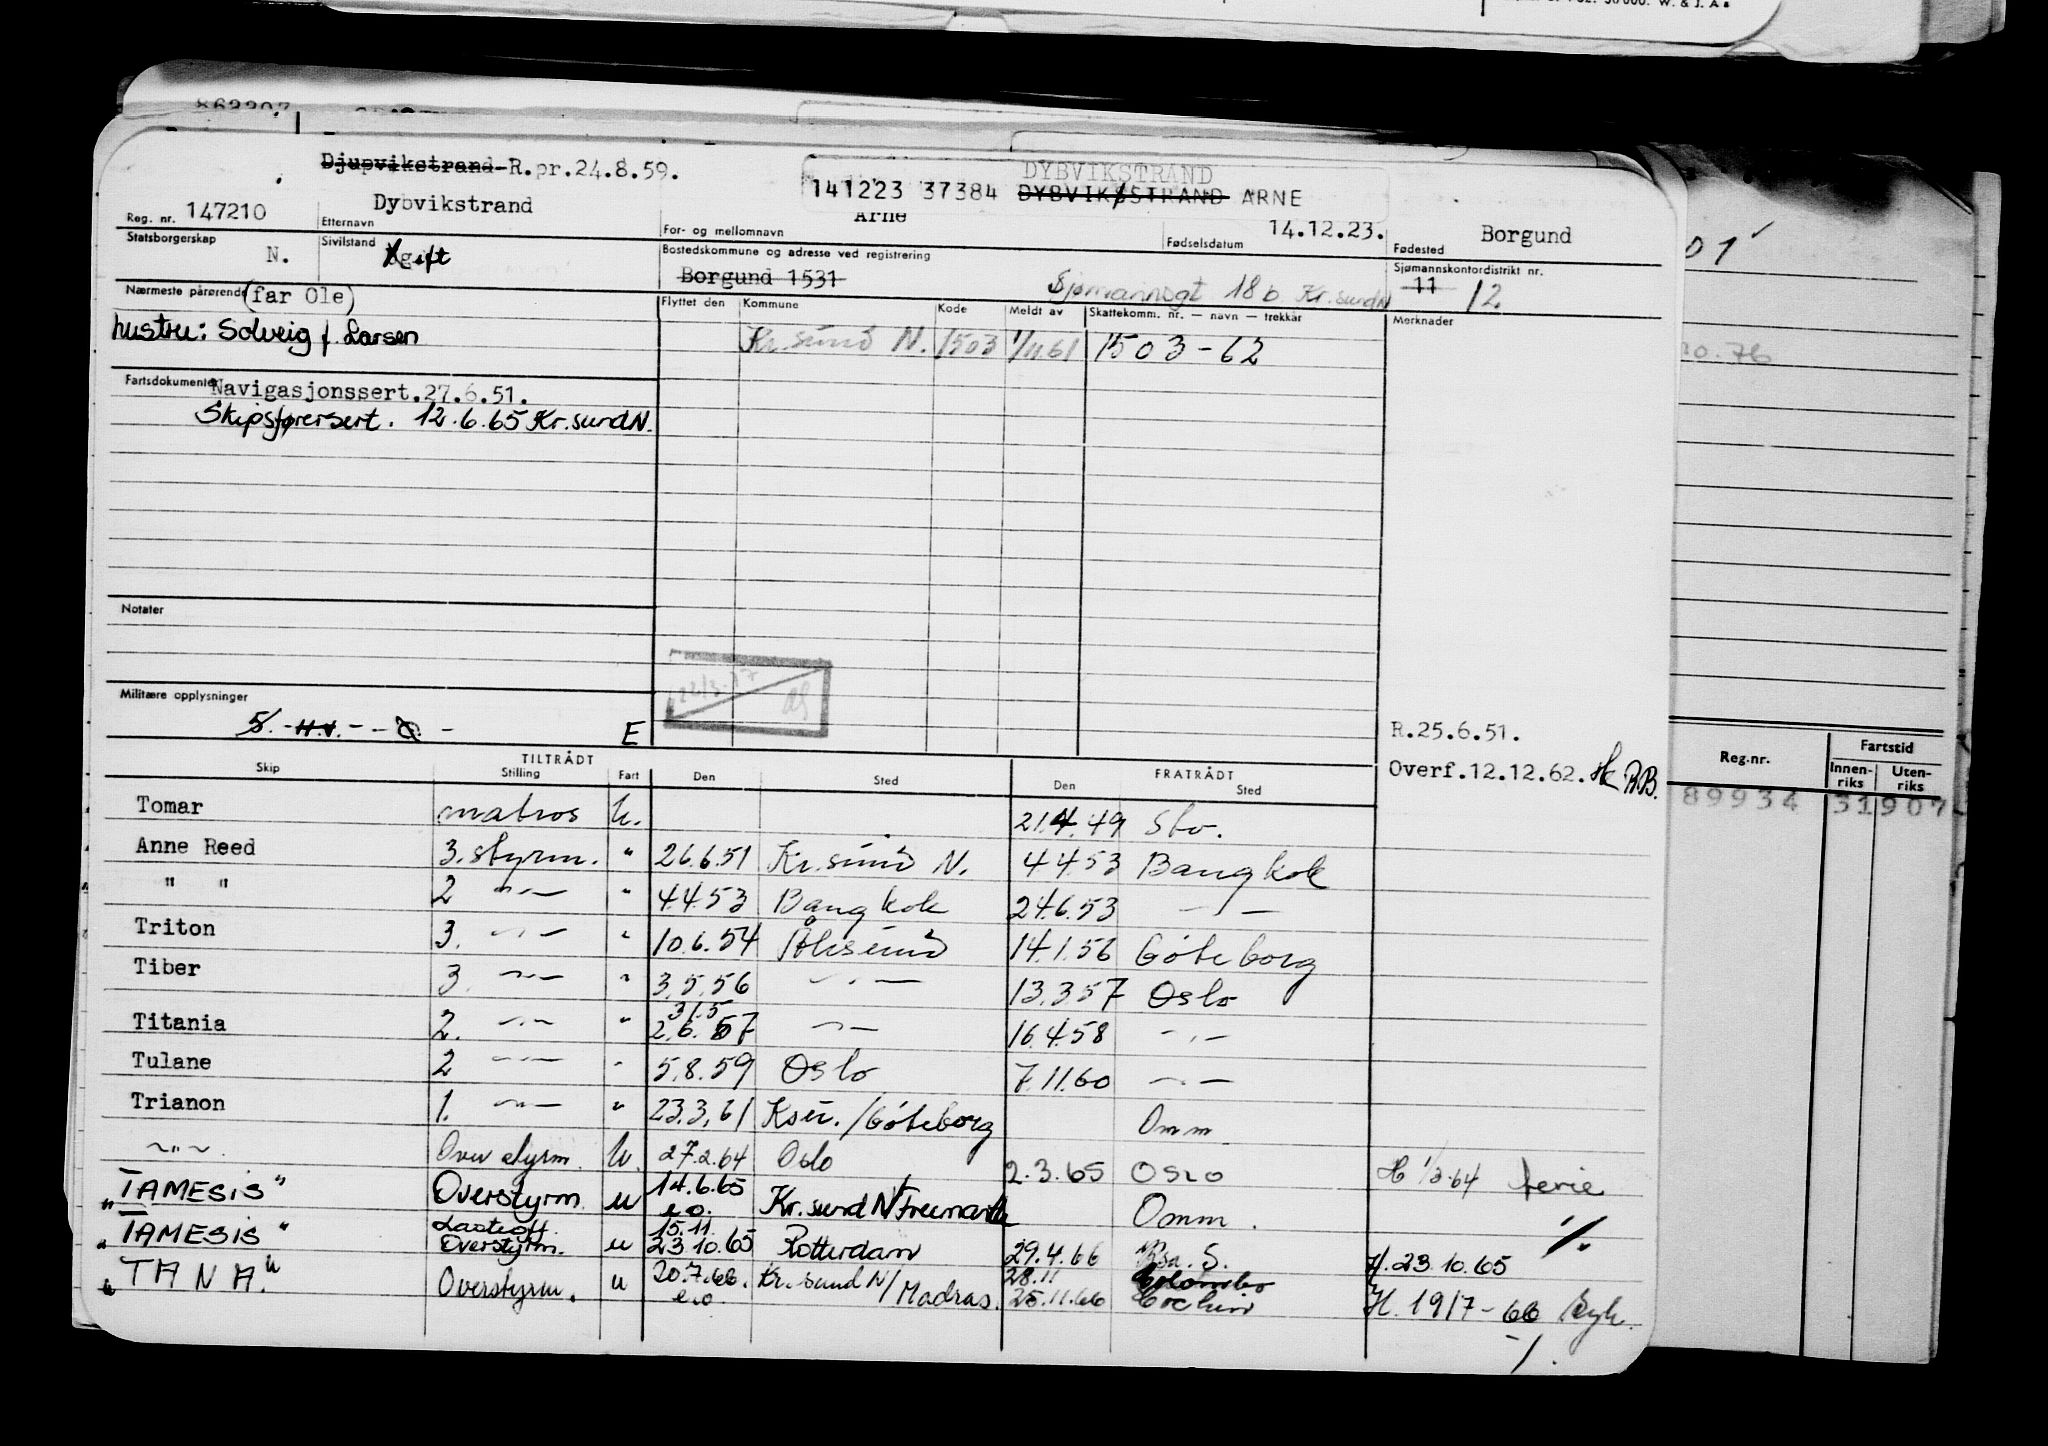 Djupvikstrand R.pr.24.8.59.
DYBVIKSTRAND
141223 37384 DYBVIKSTRAND ARNE
Reg. nr. 147210 Etternavn Dybvikstrand For- og mellomnavn Arne Fødselsdatum 14.12.23. Fødested Borgund
Statsborgerskap N. Sivilstand gift Bostedskommune og adresse ved registrering Borgund 1531 Sjømannsgt 18b Kr.sund N Sjømannskontordistrikt nr. 11 12.
Nærmeste pårørende (far Ole)
hustru: Solveig f. Larsen
Flyttet den Kommune Kode Meldt av Skattekomm. nr. — navn — trekkår Merknader
Kr.sund N. 1503 1/11 61 1503-62
Fartsdokumenter Navigasjonssert.27.6.51.
Skipsførersert. 12.6.65 Kr.sund N.
Notater
Militære opplysninger
E
R.25.6.51.
Overf.12.12.62. BB.
TILTRÅDT FRATRÅDT
Skip Stilling Fart Den Sted Den Sted
Tomar matros U. 21.4.49 Sto.
Anne Reed 3. styrm. " 26.6.51 Kr.sund N. 4.4.53 Bangkok
" " 2 —"— " 4.4.53 Bangkok 24.6.53 —"—
Triton 3. —"— " 10.6.54 Ålesund 14.1.56 Göteborg
Tiber 3. —"— " 3.5.56 —"— 13.3.57 Oslo
Titania 2. —"— " 31.5 2.6.57 —"— 16.4.58 —"—
Tulane 2 —"— " 5.8.59 Oslo 7.11.60 —"—
Trianon 1. —"— " 23.3.61 Ksu./Göteborg Omm
—"— Overstyrm. U. 27.2.64 Oslo 2.3.65 Oslo H 1/3.64 ferie
"TAMESIS" Overstyrm u 14.6.65 e.o. Kr.sund N/Freemantle Omm. %
"TAMESIS" Lasteoff. Overstyrm. u 15.11. 23.10.65 Rotterdam 29.4.66 S. H.23.10.65
"TANA" Overstyrm. u 20.7.66. e.o. Kr.sund N/Madras. 28.11 25.11.66 Colombo Cochin H. 19/7-66 syk.
Reg.nr. Fartstid
Innenriks Utenriks
89934 31907